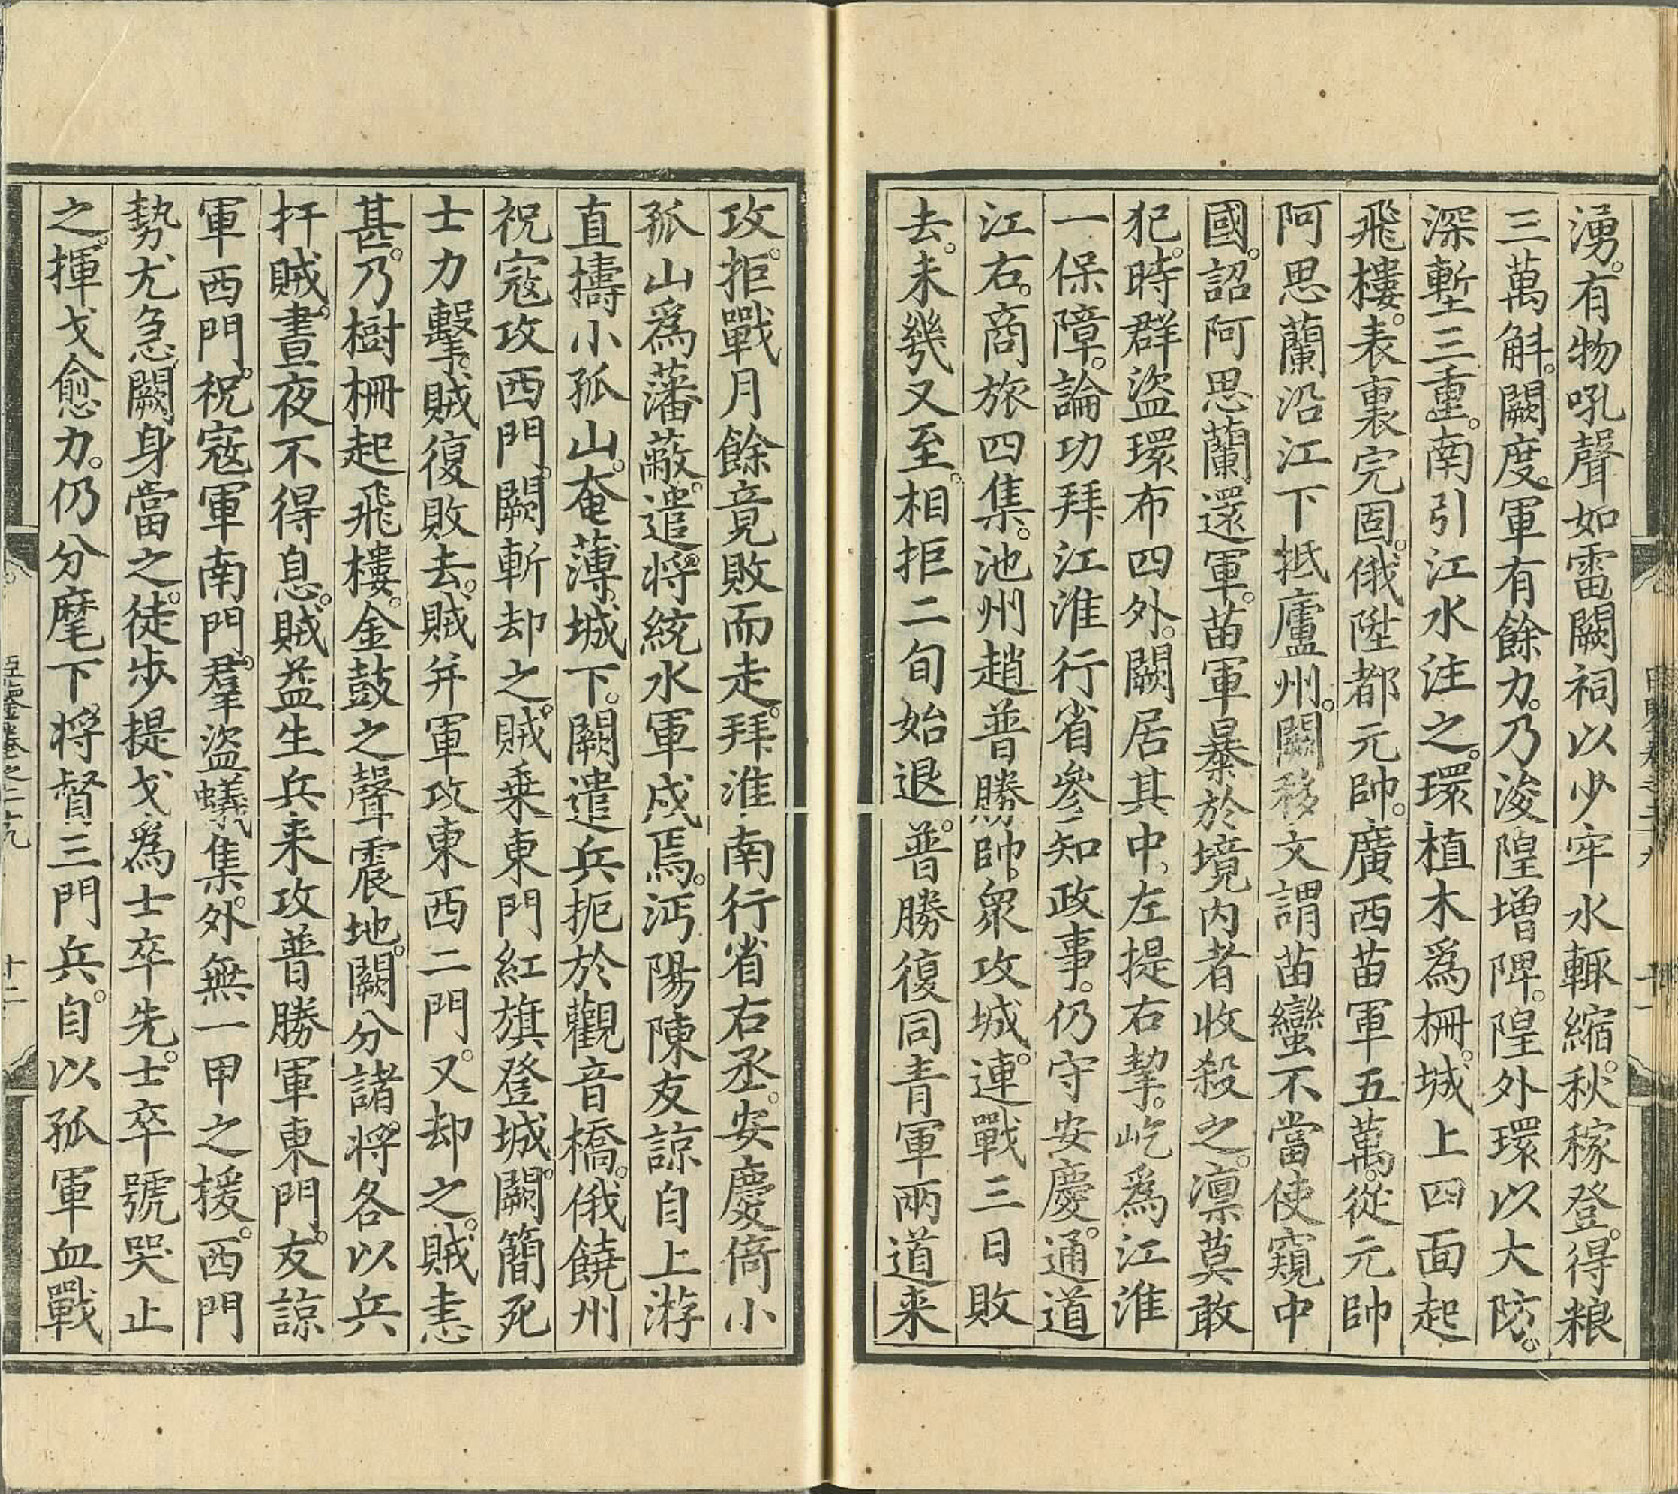 湧。有物吼聲如雷闕祠以少牢水輙縮。秋稼登。得粮
三萬斛。闕度。軍有餘力。乃浚隍增陴。隍外環以大防。
深塹三重。南引江水注之。環植木爲柵。城上四面起
飛樓。表裏完固。俄陞都元帥。廣西苗軍五萬。從元帥
阿思蘭沿江下抵廬州。闕移文謂苗蠻不當使窺中
國。詔阿思蘭還軍。苗軍暴於境內者收殺之。凛莫敢
犯。時群盜環布四外。闕居其中。左提右挈。屹爲江淮
一保障。論功拜江淮行省參知政事。仍守安慶。通道
江右。商旅四集。池州趙普勝帥。眾攻城。連戰三日敗
去。未幾又至。相拒二旬始退。普勝復同青軍兩道来
攻。拒戰月餘竟敗而走。拜淮南行省右丞。安慶倚小
孤山爲藩蔽。遣將統水軍戍焉。沔陽陳友諒自上游
直擣小孤山。奄薄。城下。闕遣兵扼於觀音橋。俄饒州
祝寇攻西門。闕斬却之。賊乗東門紅旗登城。闕簡死
士力擊。賊復敗去。賊并軍攻東西二門。又却之。賊恚
甚。乃樹柵起飛樓。金鼓之聲震地。闕分諸將各以兵
扞賊。晝夜不得息。賊益生兵来攻普勝軍東門。友諒
軍西門。祝寇軍南門。羣盜蟻集。外無一甲之援。西門
勢尤急。闕身當之。徒步提戈爲士卒先。士卒號哭止
之。揮戈愈力。仍分麾下將督三門兵。自以孤軍血戰
十二